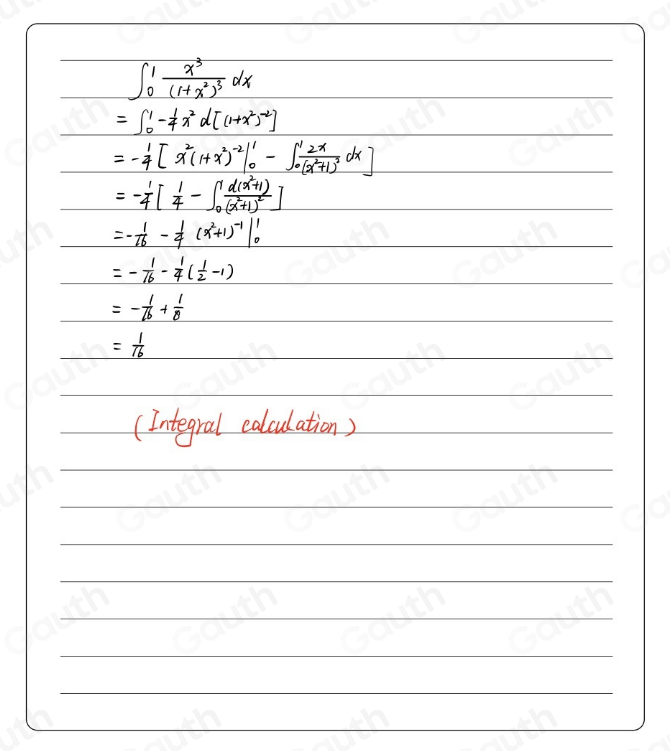 ∫₀¹ x³/(1+x²)³ dx
= ∫₀¹ -1/4 x² d[(1+x²)⁻²]
= -1/4 [ x²(1+x²)⁻² |₀¹ - ∫₀¹ 2x/(x²+1)³ dx ]
= -1/4 [ 1/4 - ∫₀¹ d(x²+1)/(x²+1)² ]
= -1/16 - 1/4 (x²+1)⁻¹ |₀¹
= -1/16 - 1/4 (1/2 - 1)
= -1/16 + 1/8
= 1/16
(Integral calculation)